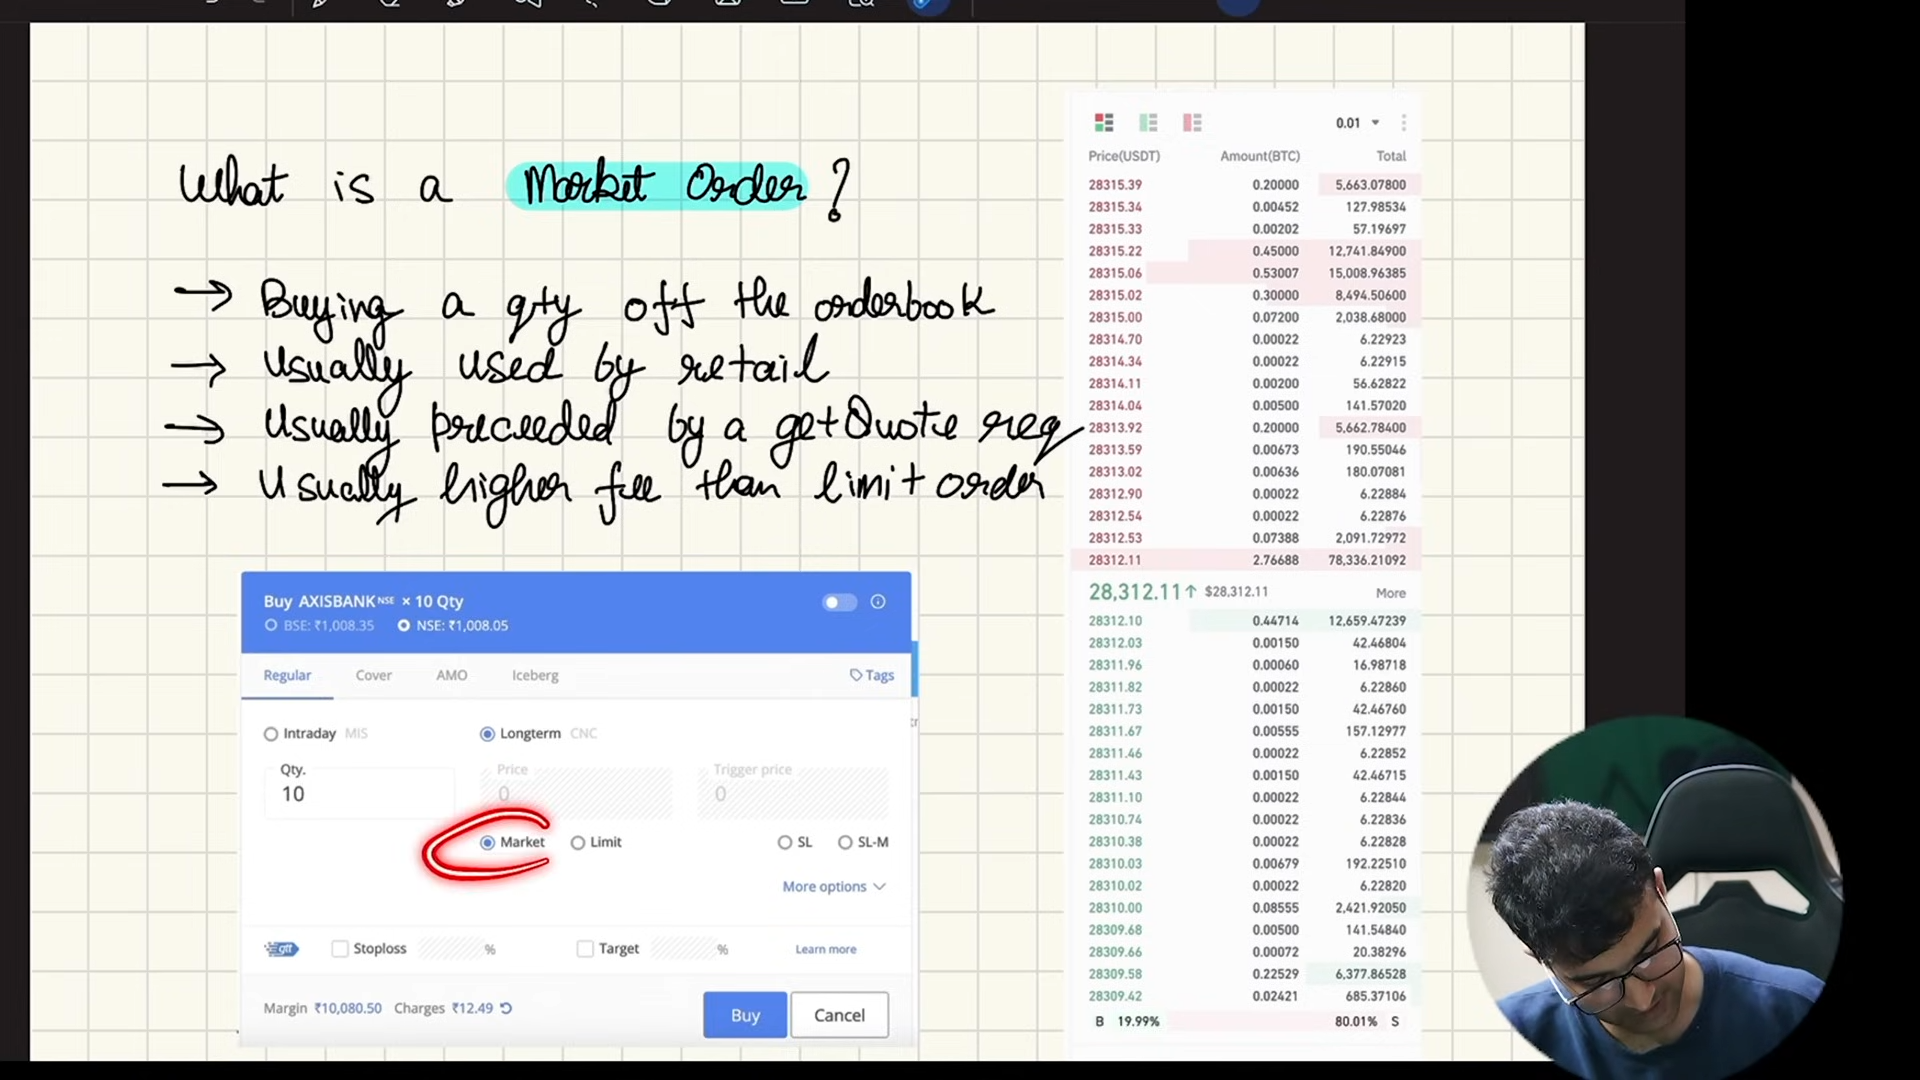 What is a Market Order?
→ Buying a qty off the orderbook
→ Usually used by retail
→ Usually preceeded by a getQuote req
→ Usually higher fee than limit order
Buy AXISBANK NSE × 10 Qty
BSE: ₹1,008.35 NSE: ₹1,008.05
Regular Cover AMO Iceberg Tags
Intraday MIS Longterm CNC
Qty. Price Trigger price
10 0 0
Market Limit SL SL-M
More options
gtt Stoploss % Target % Learn more
Margin ₹10,080.50 Charges ₹12.49 Buy Cancel
0.01
Price(USDT) Amount(BTC) Total
28315.39 0.20000 5,663.07800
28315.34 0.00452 127.98534
28315.33 0.00202 57.19697
28315.22 0.45000 12,741.84900
28315.06 0.53007 15,008.96385
28315.02 0.30000 8,494.50600
28315.00 0.07200 2,038.68000
28314.70 0.00022 6.22923
28314.34 0.00022 6.22915
28314.11 0.00200 56.62822
28314.04 0.00500 141.57020
28313.92 0.20000 5,662.78400
28313.59 0.00673 190.55046
28313.02 0.00636 180.07081
28312.90 0.00022 6.22884
28312.54 0.00022 6.22876
28312.53 0.07388 2,091.72972
28312.11 2.76688 78,336.21092
28,312.11↑ $28,312.11 More
28312.10 0.44714 12,659.47239
28312.03 0.00150 42.46804
28311.96 0.00060 16.98718
28311.82 0.00022 6.22860
28311.73 0.00150 42.46760
28311.67 0.00555 157.12977
28311.46 0.00022 6.22852
28311.43 0.00150 42.46715
28311.10 0.00022 6.22844
28310.74 0.00022 6.22836
28310.38 0.00022 6.22828
28310.03 0.00679 192.22510
28310.02 0.00022 6.22820
28310.00 0.08555 2,421.92050
28309.68 0.00500 141.54840
28309.66 0.00072 20.38296
28309.58 0.22529 6,377.86528
28309.42 0.02421 685.37106
B 19.99% 80.01% S